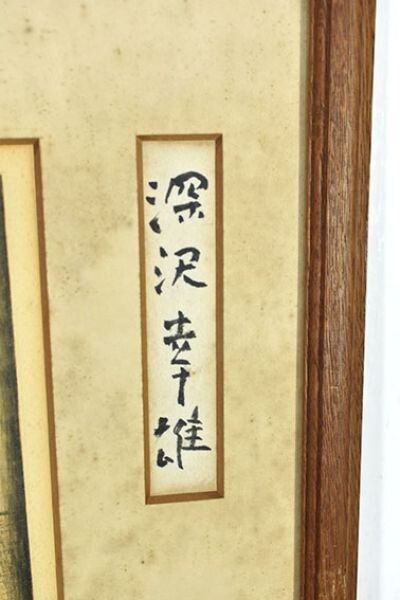 深沢幸雄